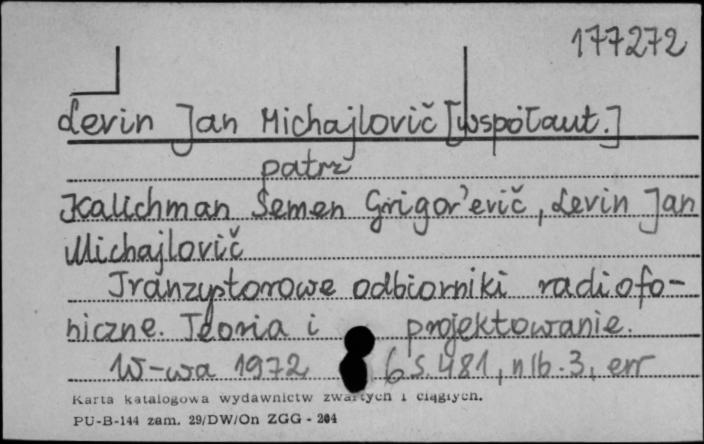 177272
Levin Jan Michajlovič [współaut.]
patrz
Kalichman Semen Grigor'evič, Levin Jan
Michajlovič
Tranzystorowe odbiorniki radiofo-
niczne. Teoria i projektowanie.
W-wa 1972 6 s. 481, nlb. 3, err
Karta katalogowa wydawnictw zwartych i ciągłych.
PU-B-144 zam. 29/DW/On ZGG - 204